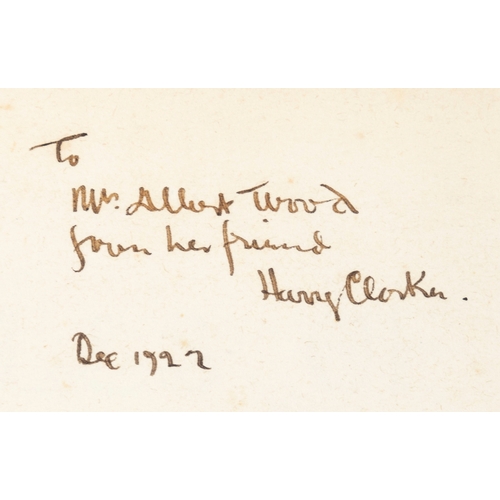 To
Mrs. Albert Wood
from her friend
Harry Clarke.
Dec 1922